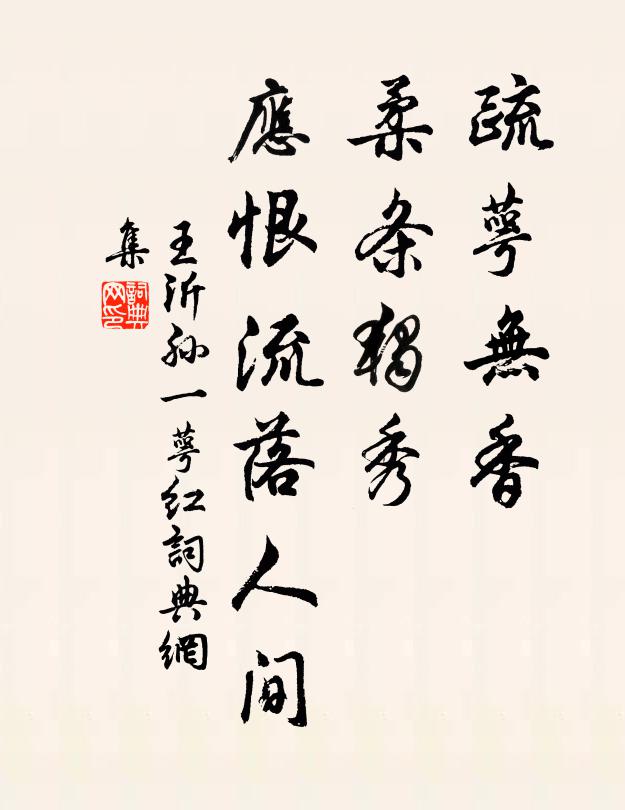 疏萼無香
柔条獨秀
應恨流落人间
王沂孙一萼红詞典網
集
詞典網印